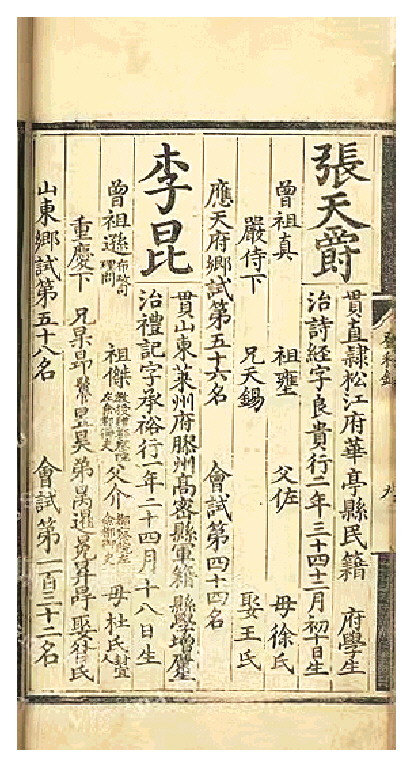 張天爵
貫直隸松江府華亭縣民籍 府學生
治詩經字良貴行二年三十四十二月初十日生
曾祖真 祖壅 父佐 母徐氏
嚴侍下 兄天錫 娶王氏
應天府鄉試第五十六名 會試第四十四名
李昆
貫山東萊州府膠州高密縣軍籍 縣學增廣生
治禮記字承裕行一年二十四月十八日生
曾祖遜 祖傑 父介 母杜氏
重慶下 兄杲昴 昱昊弟 娶 氏
山東鄉試第五十八名 會試第一百三十二名